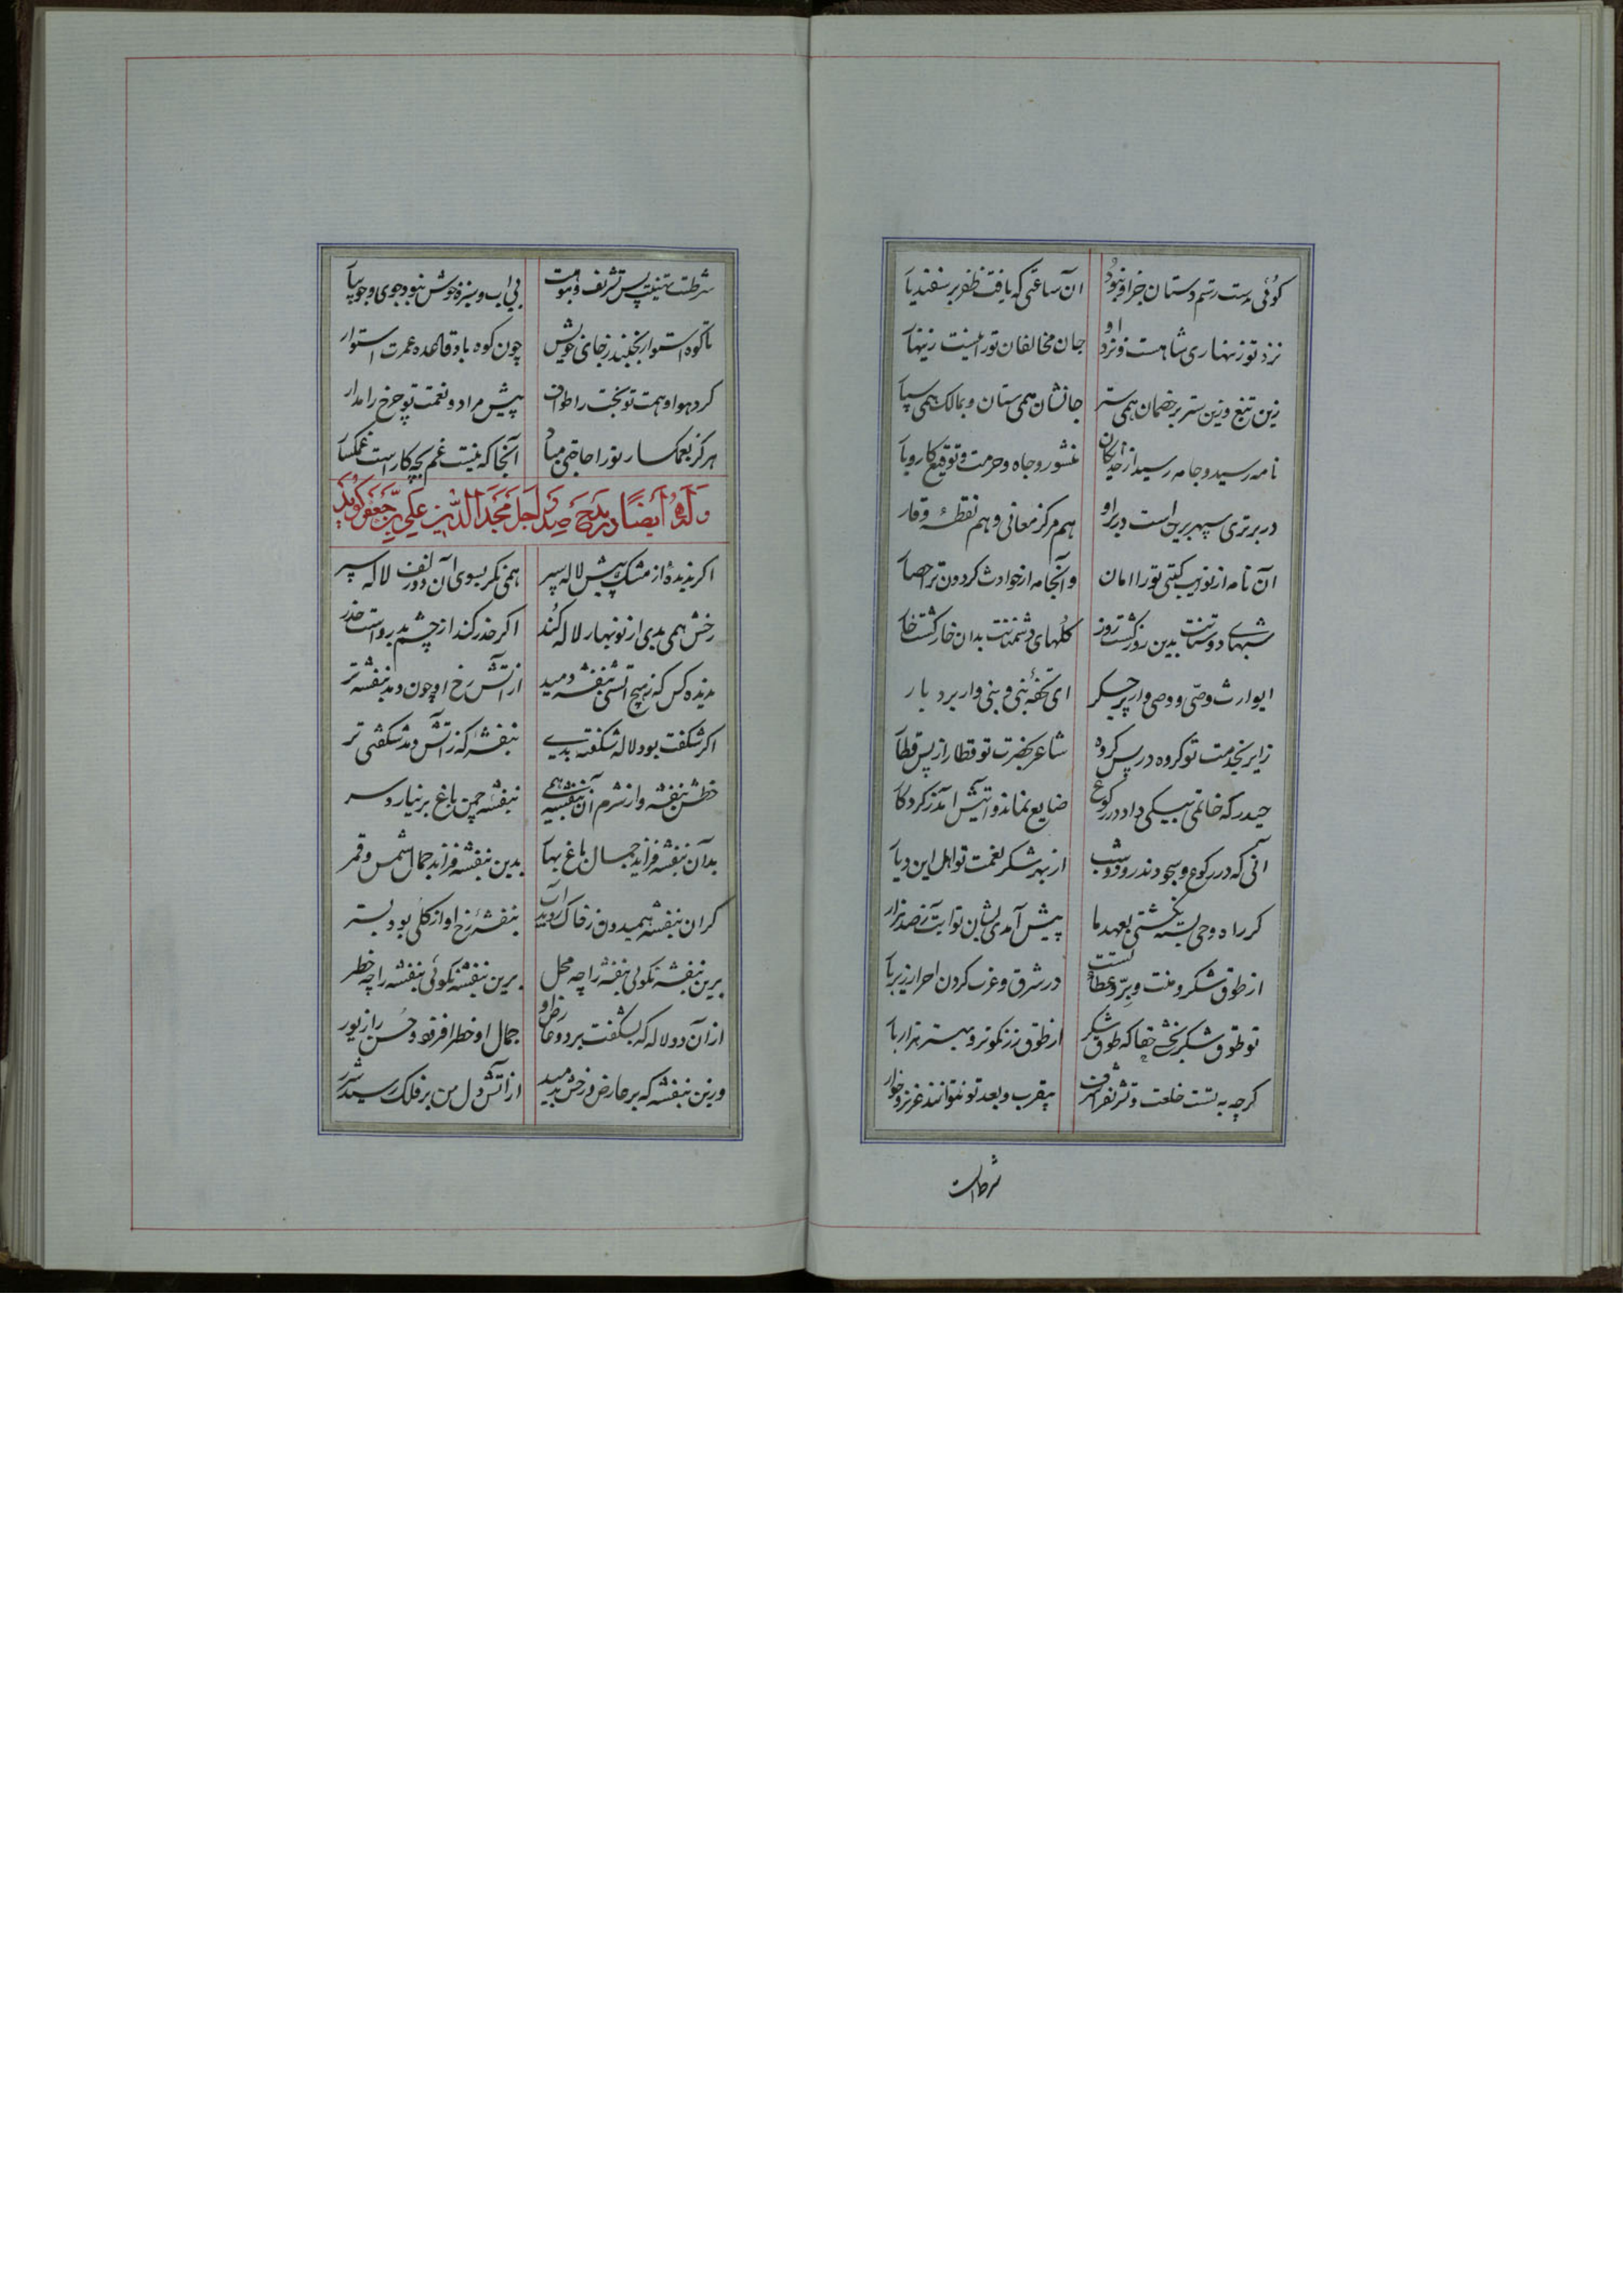 کوئی که هست رستم دستان جز او نبود آن ساعتی که یافت ظفر بر سفندیا
نزد تو زنهاری شاهست و نزد او جان مخالفان تو را نیست زینها
زین تیغ و زین ستر بر خصمان همی ستر جانشان همی ستان و بمالک همی سپا
نامه رسید و جامه رسید از خدایکان منشور و جاه و حرمت و توقیع کاروبا
در برتری سپهر برین است دیر او هم مرکز معانی و هم نقطهٔ وقار
آن نامه از نوایب کیتی تو را امان وآنجامه از حوادث کردون ترا حصا
شبهای دوستانت بدین روز کشت روز کلهای دشمنت بدان خار کشت خا
ایوارث وصی و وصی وار پر جکر ای تحفهٔ نبی و نبی وار بردبار
زایر بخدمت تو کروه در پس کروه شاعر بحضرت تو قطار از پس قطا
حیدر که خاتمی بیکی داد در رکوع ضایع نماند و آیتش آمد ز کردکا
آنی که در رکوع و سجودند روز و شب از بهر شکر نعمت تو اهل این دیا
کر راه وحی بسته نکشتی بعهد ما پیش آمدی بشان تو آیت ز صد هزار
از طوق شکر و منت و برّ و عطاء تست در شرق و غرب کردن احرار زیر با
تو طوق شکر بخشی حقا که طوق شکر از طوق زر نکوتر و بهتر هزار با
کرچه به تست خلعت و تشریف را شرف بیقرب و بعد تو نتوانند عزیز و خوار
شرطست
شرطست تهنیت پس تشریف و هوات بی آب و سبزه خوش نبود جوی و جویبا
تا کوه استوار بجنبد ز جای خویش چون کوه باد قاعده عمرت استوار
کرد هوا و همت تو بخت را طواف پیش مراد و نعمت تو چرخ را مدار
هرکز بغمکسار تو را حاجتی مباد آنجا که نیست غم بچه کار است غمکسا
وله ایضا در مدح صدر اجل مجد الدین علی بن جعفر کوید
اکر ندیدهٔ از مشک پیش لاله سپر همی نکر بسوی آن دو زلف لاله سپر
رخش همی بدی از نوبهار لاله کند اکر حذر کند از چشم بد رواست حذر
ندیده کس که ز هیچ آتشی بنفشه دمید از آتش رخ او چون دمد بنفشه تر
اکر شکفت بود لاله شکفته بدی بنفشهٔ که ز آتش دمد شکفتی تر
خطش بنفشه و از شرم آن بنفشه همی بنفشه چمن باغ بر نیارد سر
بدان بنفشه فزاید جمال باغ بها بدین بنفشه فزاید جمال شمس و قمر
کر آن بنفشه همیدون ز خاک روید و آب بنفشهٔ رخ او از کلی بود بستر
برین بنفشه نکوئی بنفشه را چه محل برین بنفشه نکوئی بنفشه را چه خطر
از آن دو لاله که بشکفت بر دو عارض او جمال او خطر افزود و حسن را زیور
وزین بنفشه که بر عارض و رخش بدمید از آتش دل من بر فلک رسید شرر